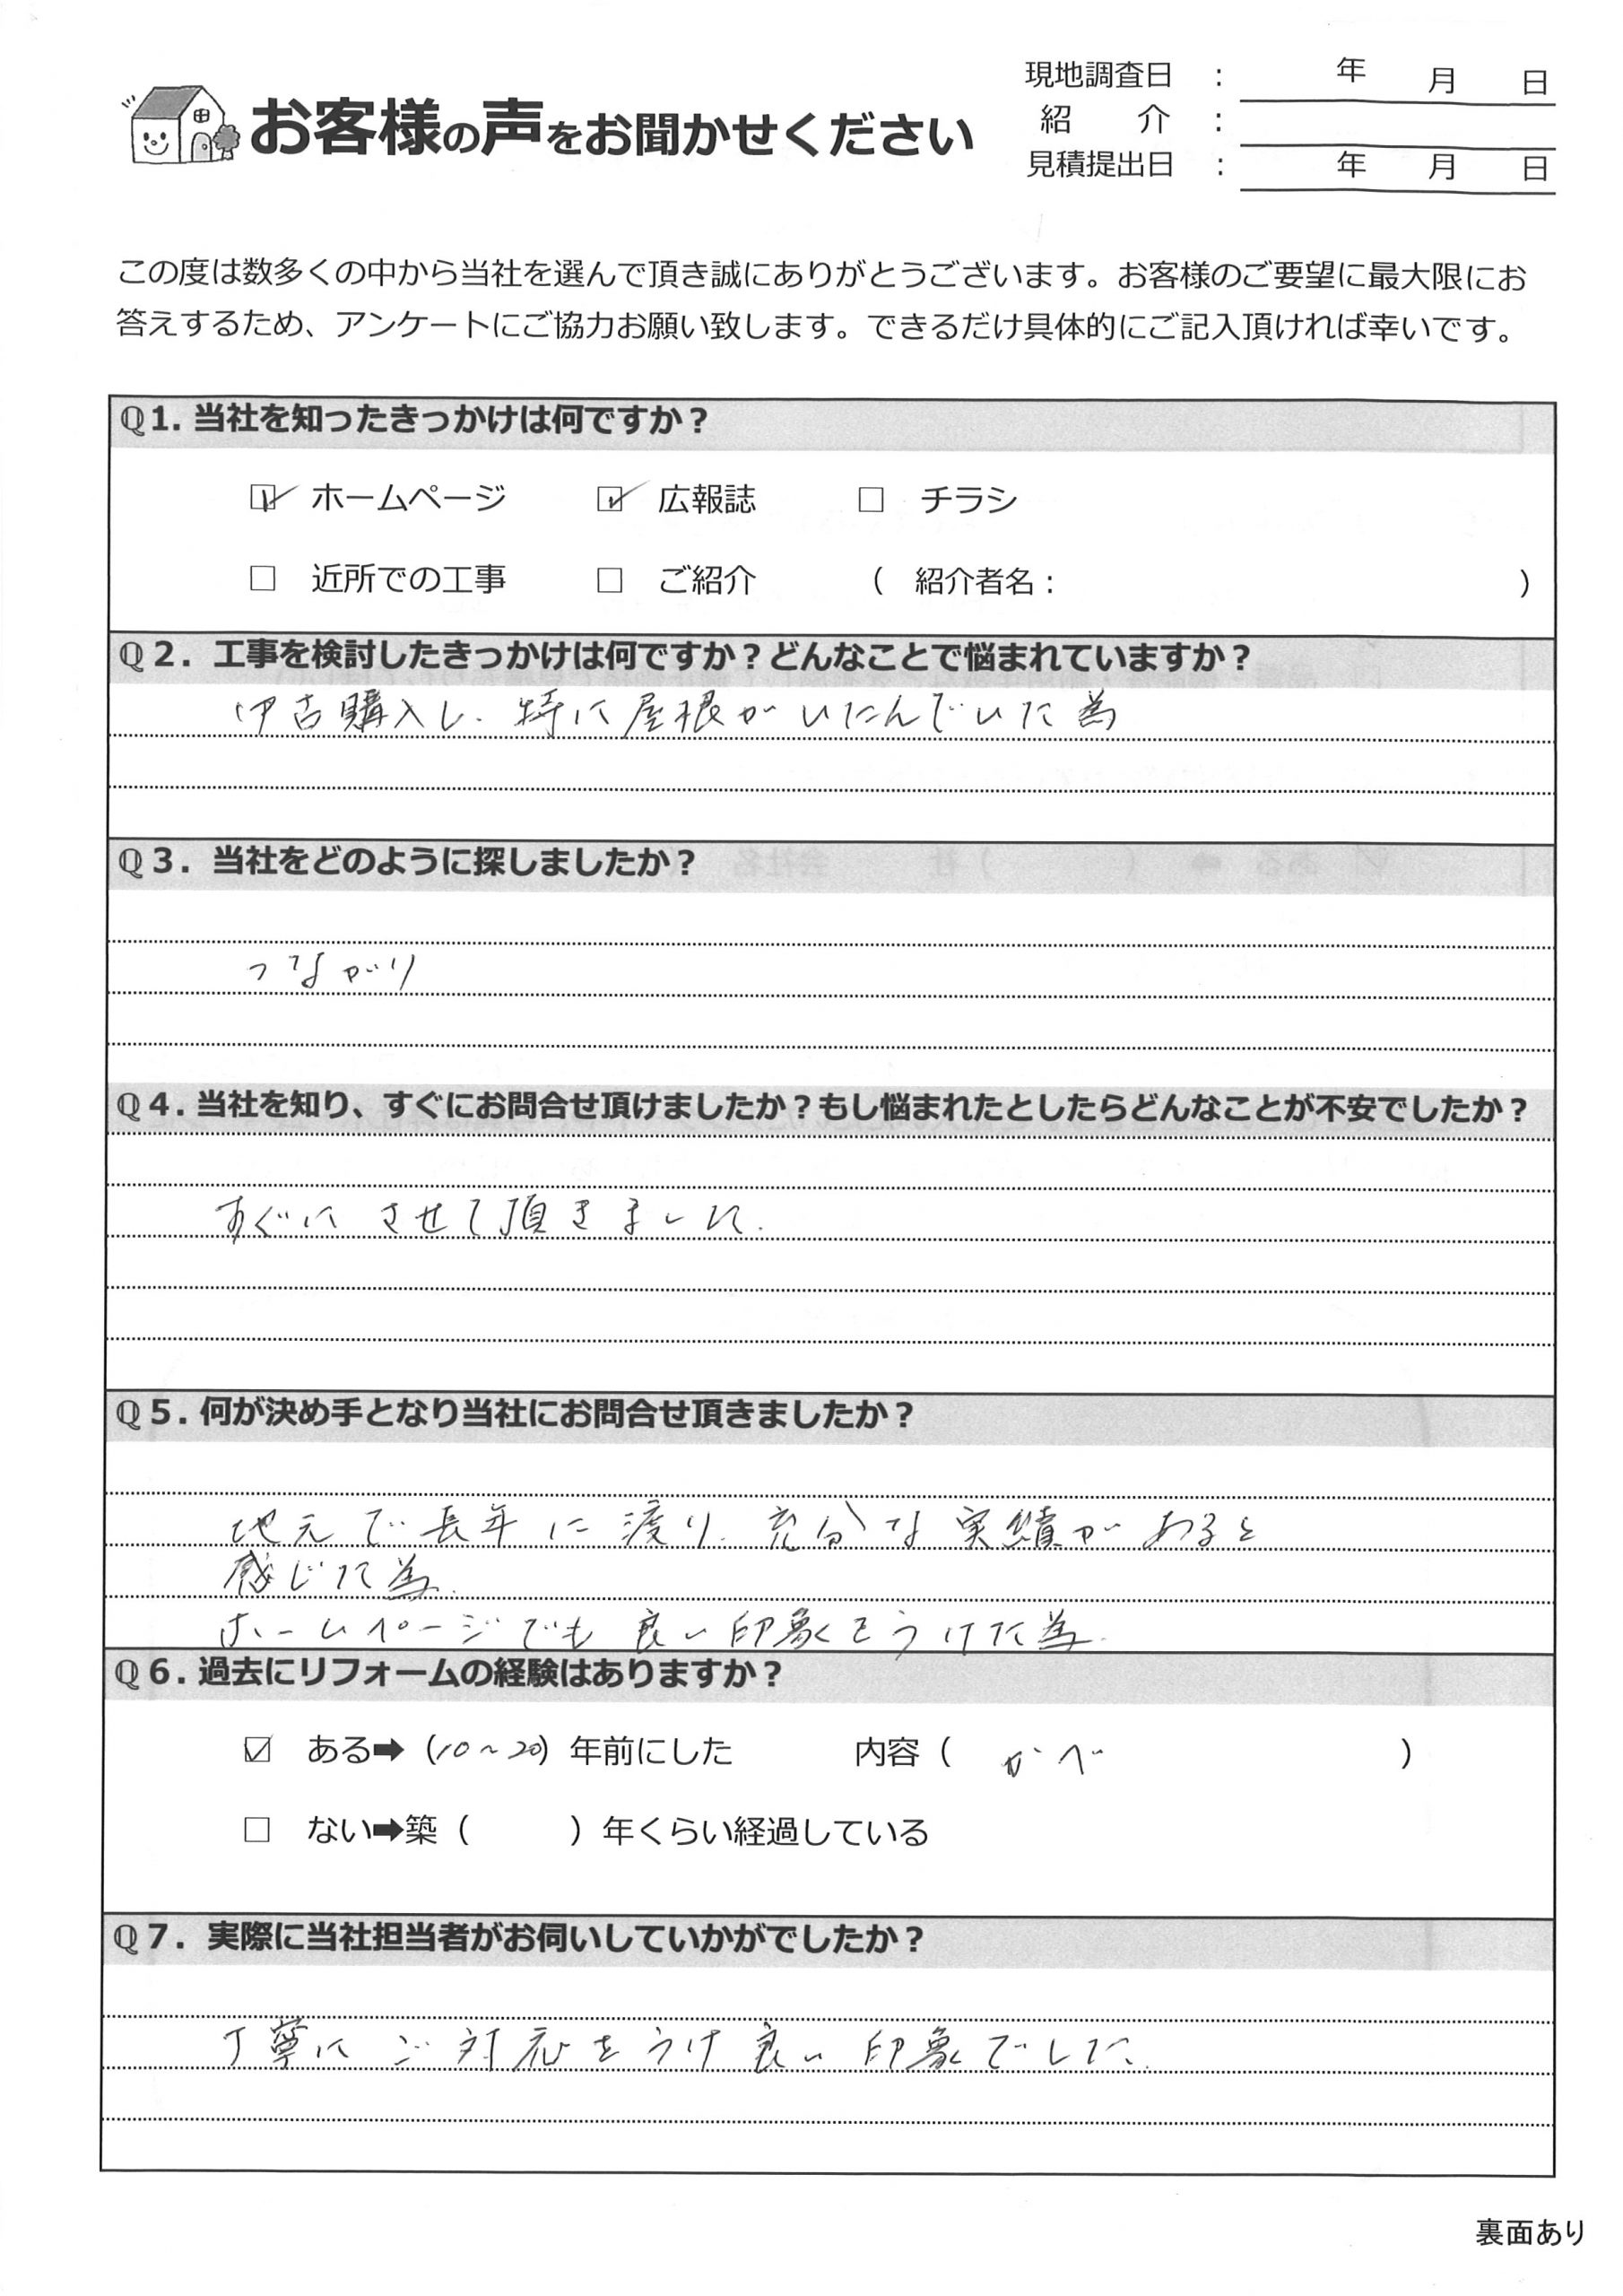 お客様の声をお聞かせください
現地調査日 : 年 月 日
紹 介 :
見積提出日 : 年 月 日
この度は数多くの中から当社を選んで頂き誠にありがとうございます。お客様のご要望に最大限にお
答えするため、アンケートにご協力お願い致します。できるだけ具体的にご記入頂ければ幸いです。
Q1. 当社を知ったきっかけは何ですか？
☑ ホームページ ☑ 広報誌 □ チラシ
□ 近所での工事 □ ご紹介 ( 紹介者名： )
Q2. 工事を検討したきっかけは何ですか？どんなことで悩まれていますか？
中古購入し、特に屋根がいたんでいた為
Q3. 当社をどのように探しましたか？
つながり
Q4. 当社を知り、すぐにお問合せ頂けましたか？もし悩まれたとしたらどんなことが不安でしたか？
すぐに させて頂きました.
Q5. 何が決め手となり当社にお問合せ頂きましたか？
地元で長年に渡り、充分な実績があると
感じた為.
ホームページでも良い印象をうけた為.
Q6. 過去にリフォームの経験はありますか？
☑ ある➡ (10～20) 年前にした 内容 ( かべ )
□ ない➡築 ( ) 年くらい経過している
Q7. 実際に当社担当者がお伺いしていかがでしたか？
丁寧に ご対応をうけ良い印象でした.
裏面あり